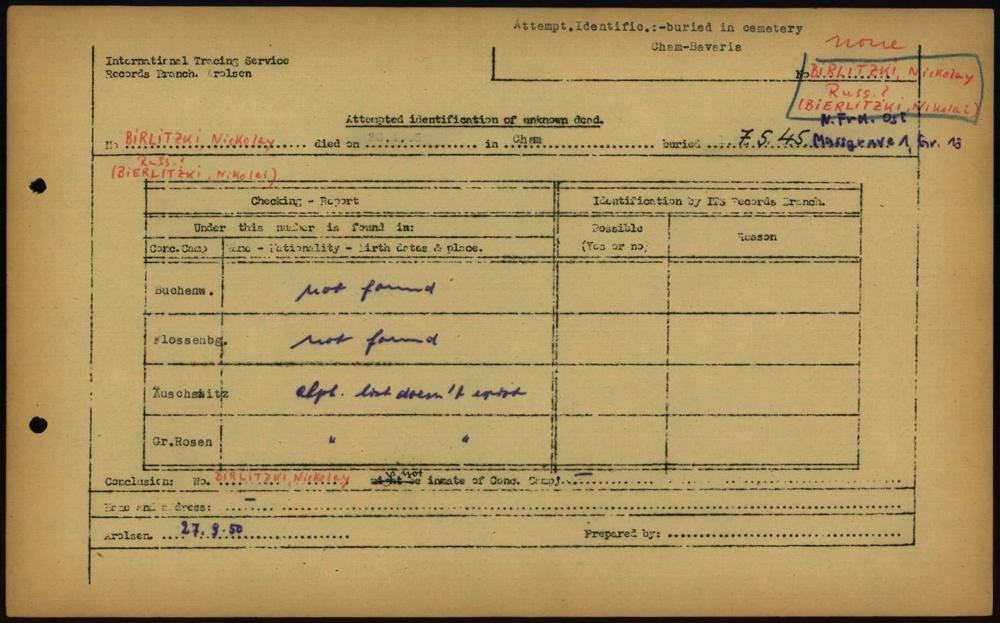 Attempt.Identific.:-buried in cemetery
Cham-Bavaria
none
International Tracing Service
Records Branch. Arolsen
No BIRLITZKI, Nickolay
Russ.?
(BIERLITZKI, Nikolai)
Attempted identification of unknown dead.
N. Frh. Ost
No BIRLITZKI Nickolay died on in Cham buried 7.5.45 Massgrave 1, Gr. 18
Russ.?
(BIERLITZKI, Nikolai)
Checking - Report
Identification by ITS Records Branch.
Under this number is found in:
Possible
(Yes or no)
Reason
Conc.Camp
Name - Nationality - birth dates & place.
Buchenw. not found
Flossenbg. not found
Auschwitz alph. list doesn't exist
Gr.Rosen " "
is not
Conclusion: No. BIRLITZKI, Nickolay might be inmate of Conc. Camp. —
Name and address: —
Arolsen. 27.9.50 Prepared by: